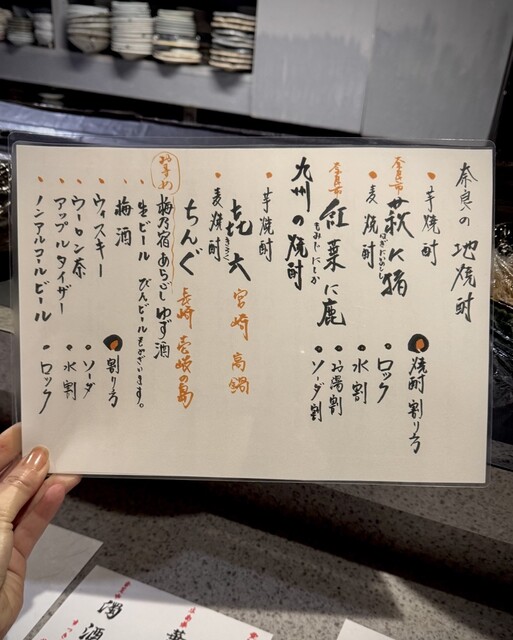 奈良の地焼酎
芋焼酎
奈良市 萩に猪
はぎにいのしし
麦焼酎
奈良市 紅葉に鹿
もみじにしか
九州の焼酎
芋焼酎
㐂六 宮崎 高鍋
きろく
麦焼酎
ちんぐ 長崎 壱岐の島
おすすめ 梅乃宿 あらごし ゆず酒
生ビール びんビールもございます。
梅酒
ウィスキー
ウーロン茶
アップルタイザー
ノンアルコールビール
焼酎 割り方
ロック
水割
お湯割
ソーダ割
割り方
ソーダ
水割
ロック
濁酒